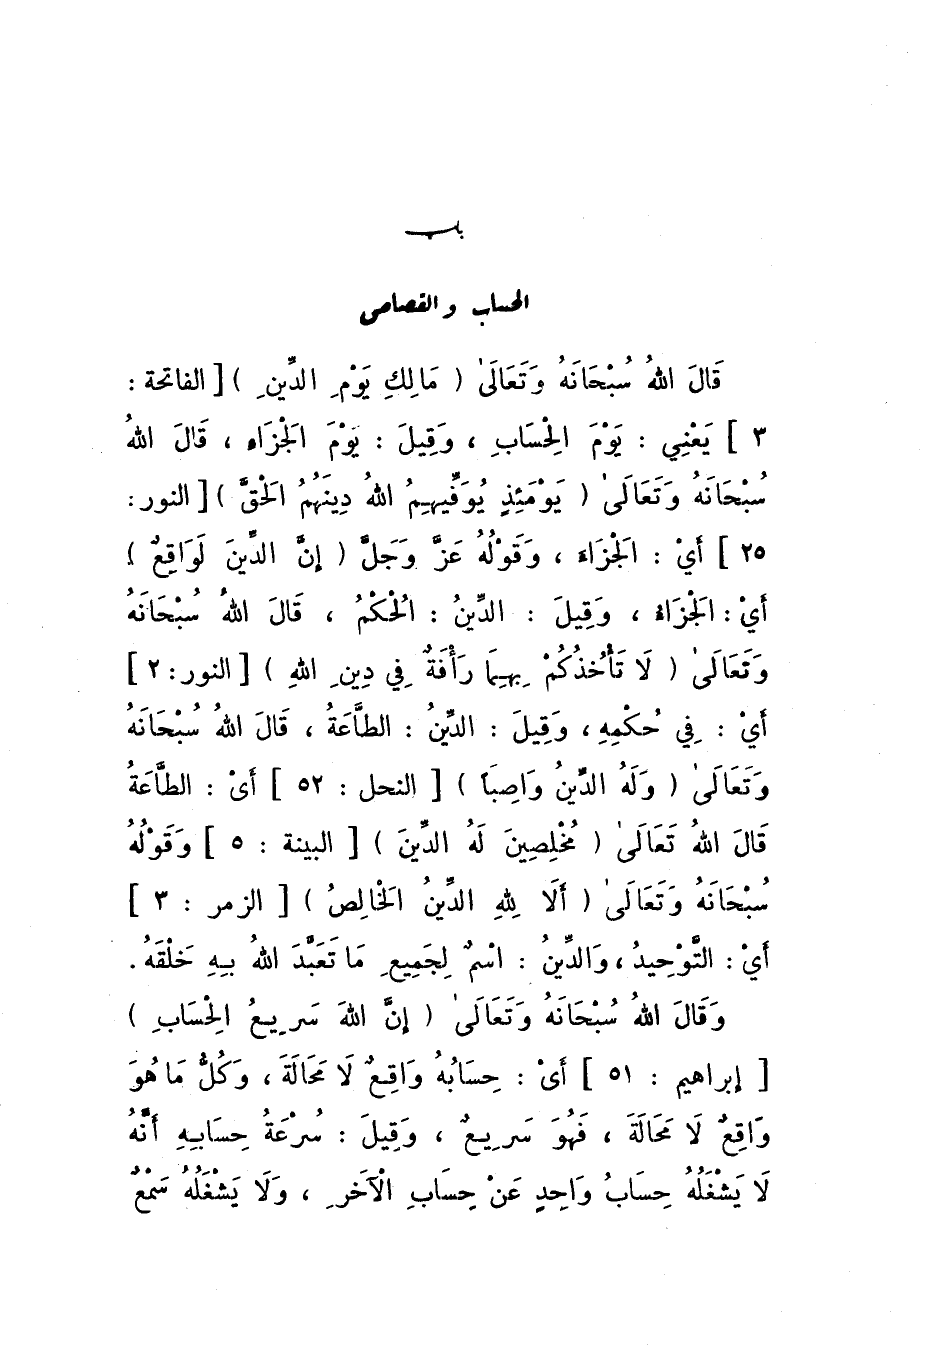 باب
الحساب والقصاص
قَالَ اللهُ سُبْحَانَهُ وَتَعَالَىٰ ( مَالِكِ يَوْمِ الدِّينِ ) [ الفاتحة :
٣ ] يَعْنِي : يَوْمَ الْحِسَابِ ، وَقِيلَ : يَوْمَ الْجَزَاءِ ، قَالَ اللهُ
سُبْحَانَهُ وَتَعَالَىٰ ( يَوْمَئِذٍ يُوَفِّيهِمُ اللهُ دِينَهُمُ الْحَقَّ ) [ النور :
٢٥ ] أَيْ : الْجَزَاءَ ، وَقَوْلُهُ عَزَّ وَجَلَّ ( إِنَّ الدِّينَ لَوَاقِعٌ )
أَيْ : الْجَزَاءُ ، وَقِيلَ : الدِّينُ : الْحُكْمُ ، قَالَ اللهُ سُبْحَانَهُ
وَتَعَالَىٰ ( لَا تَأْخُذْكُمْ بِهِمَا رَأْفَةٌ فِي دِينِ اللهِ ) [ النور : ٢ ]
أَيْ : فِي حُكْمِهِ ، وَقِيلَ : الدِّينُ : الطَّاعَةُ ، قَالَ اللهُ سُبْحَانَهُ
وَتَعَالَىٰ ( وَلَهُ الدِّينُ وَاصِبَاً ) [ النحل : ٥٢ ] أَيْ : الطَّاعَةُ
قَالَ اللهُ تَعَالَىٰ ( مُخْلِصِينَ لَهُ الدِّينَ ) [ البينة : ٥ ] وَقَوْلُهُ
سُبْحَانَهُ وَتَعَالَىٰ ( أَلَا لِلهِ الدِّينُ الْخَالِصُ ) [ الزمر : ٣ ]
أَيْ : التَّوْحِيدُ ، وَالدِّينُ : اسْمٌ لِجَمِيعِ مَا تَعَبَّدَ اللهُ بِهِ خَلْقَهُ .
وَقَالَ اللهُ سُبْحَانَهُ وَتَعَالَىٰ ( إِنَّ اللهَ سَرِيعُ الْحِسَابِ )
[ إبراهيم : ٥١ ] أَيْ : حِسَابُهُ وَاقِعٌ لَا مَحَالَةَ ، وَكُلُّ مَا هُوَ
وَاقِعٌ لَا مَحَالَةَ ، فَهُوَ سَرِيعٌ ، وَقِيلَ : سُرْعَةُ حِسَابِهِ أَنَّهُ
لَا يَشْغَلُهُ حِسَابُ وَاحِدٍ عَنْ حِسَابِ الْآخَرِ ، وَلَا يَشْغَلُهُ سَمْعٌ